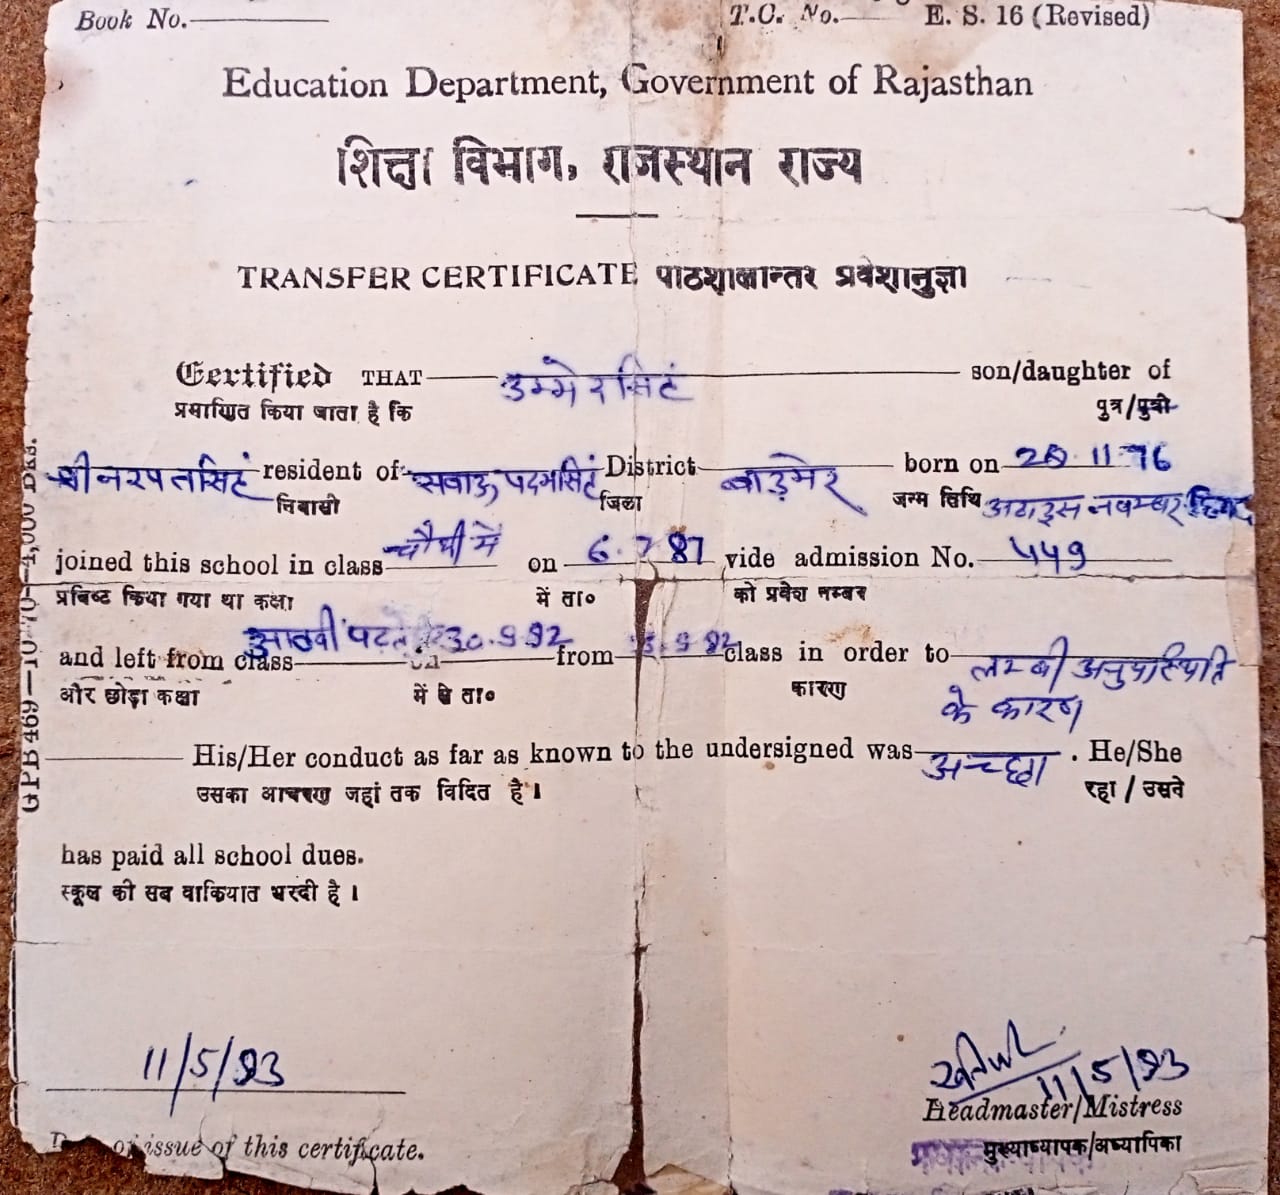 Book No.
T.C. No. E. S. 16 (Revised)
Education Department, Government of Rajasthan
शिक्षा विभाग, राजस्थान राज्य
TRANSFER CERTIFICATE पाठशालान्तर प्रवेशानुज्ञा
Certified THAT उम्मेरसिहं son/daughter of
प्रमाणित किया जाता है कि पुत्र/पुत्री
श्री नरपतसिहं resident of सवाऊ पदमसिहं District बाड़मेर born on 28.11.76
निवासी जिला जन्म तिथि अठाइस नवम्बर
joined this school in class चौथी में on 6.7.87 vide admission No. ५५९
प्रबिष्ट किया गया था कक्षा में ता० को प्रवेश नम्बर
and left from class आठवी पढ़ते 30.9.92 from class in order to लम्बी अनुपस्थिति
और छोड़ा कक्षा में से ता० कारण के कारण
His/Her conduct as far as known to the undersigned was अच्छा. He/She
उसका आचरण जहां तक विदित है। रहा / उसने
has paid all school dues.
स्कूल की सब वाकियात भरदी है।
GPB 469—10-70—4,000 Bks.
11/5/93
11/5/93
Headmaster/Mistress
of issue of this certificate.
मुख्याध्यापक/अध्यापिका